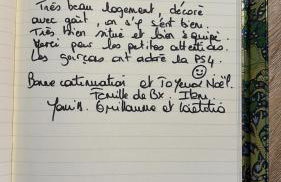 Très beau logement, décoré
avec goût, on s'y sent bien.
Très bien situé et bien équipé.
Merci pour les petites attentions.
Les garçons ont adoré la PS4.
Bonne continuation et Joyeux Noël.
Famille de Bx.
Guillaume et Laëtitia